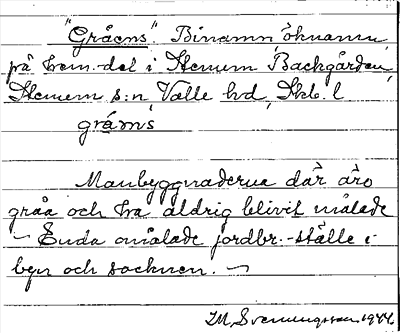 "Gråens" Binamn, öknamn
på hem.-del i Stenum, Backgården,
Stenum s:n, Valle hd, Skb. l.
gråǝns
Manbyggnaderna där äro
gråa och ha aldrig blivit målade
– Enda omålade jordbr.-ställe i
byn och socknen. –
M. Svenungsson 1944